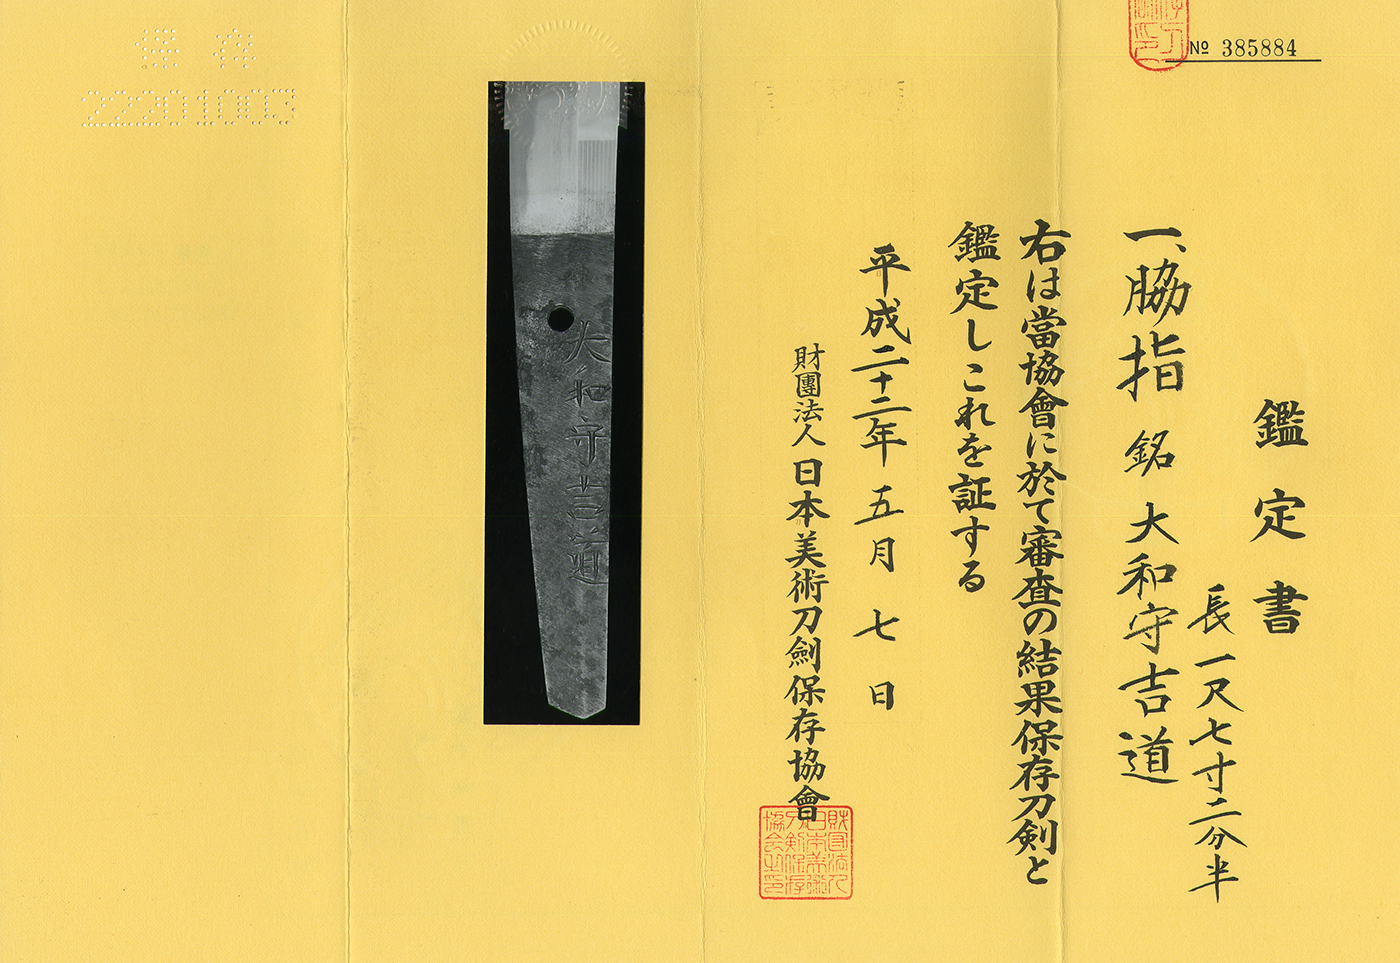 № 385884
鑑定書
長一尺七寸二分半
一、脇指 銘 大和守吉道
右は當協會に於て審査の結果保存刀剣と
鑑定しこれを証する
平成二十二年五月七日
財團法人日本美術刀劍保存協會
財団法人
日本美術
刀剣保存
協会之印
大和守吉道
保存
22201003